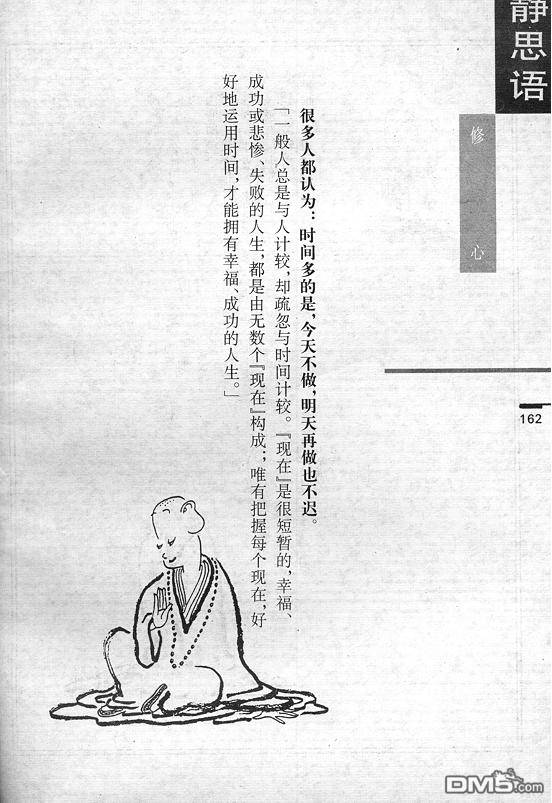 静思语
修心
162
很多人都认为：时间多的是，今天不做，明天再做也不迟。
「一般人总是与人计较，却疏忽与时间计较。『现在』是很短暂的，幸福、
成功或悲惨、失败的人生，都是由无数个『现在』构成；唯有把握每个现在，好
好地运用时间，才能拥有幸福、成功的人生。」
DM5.com